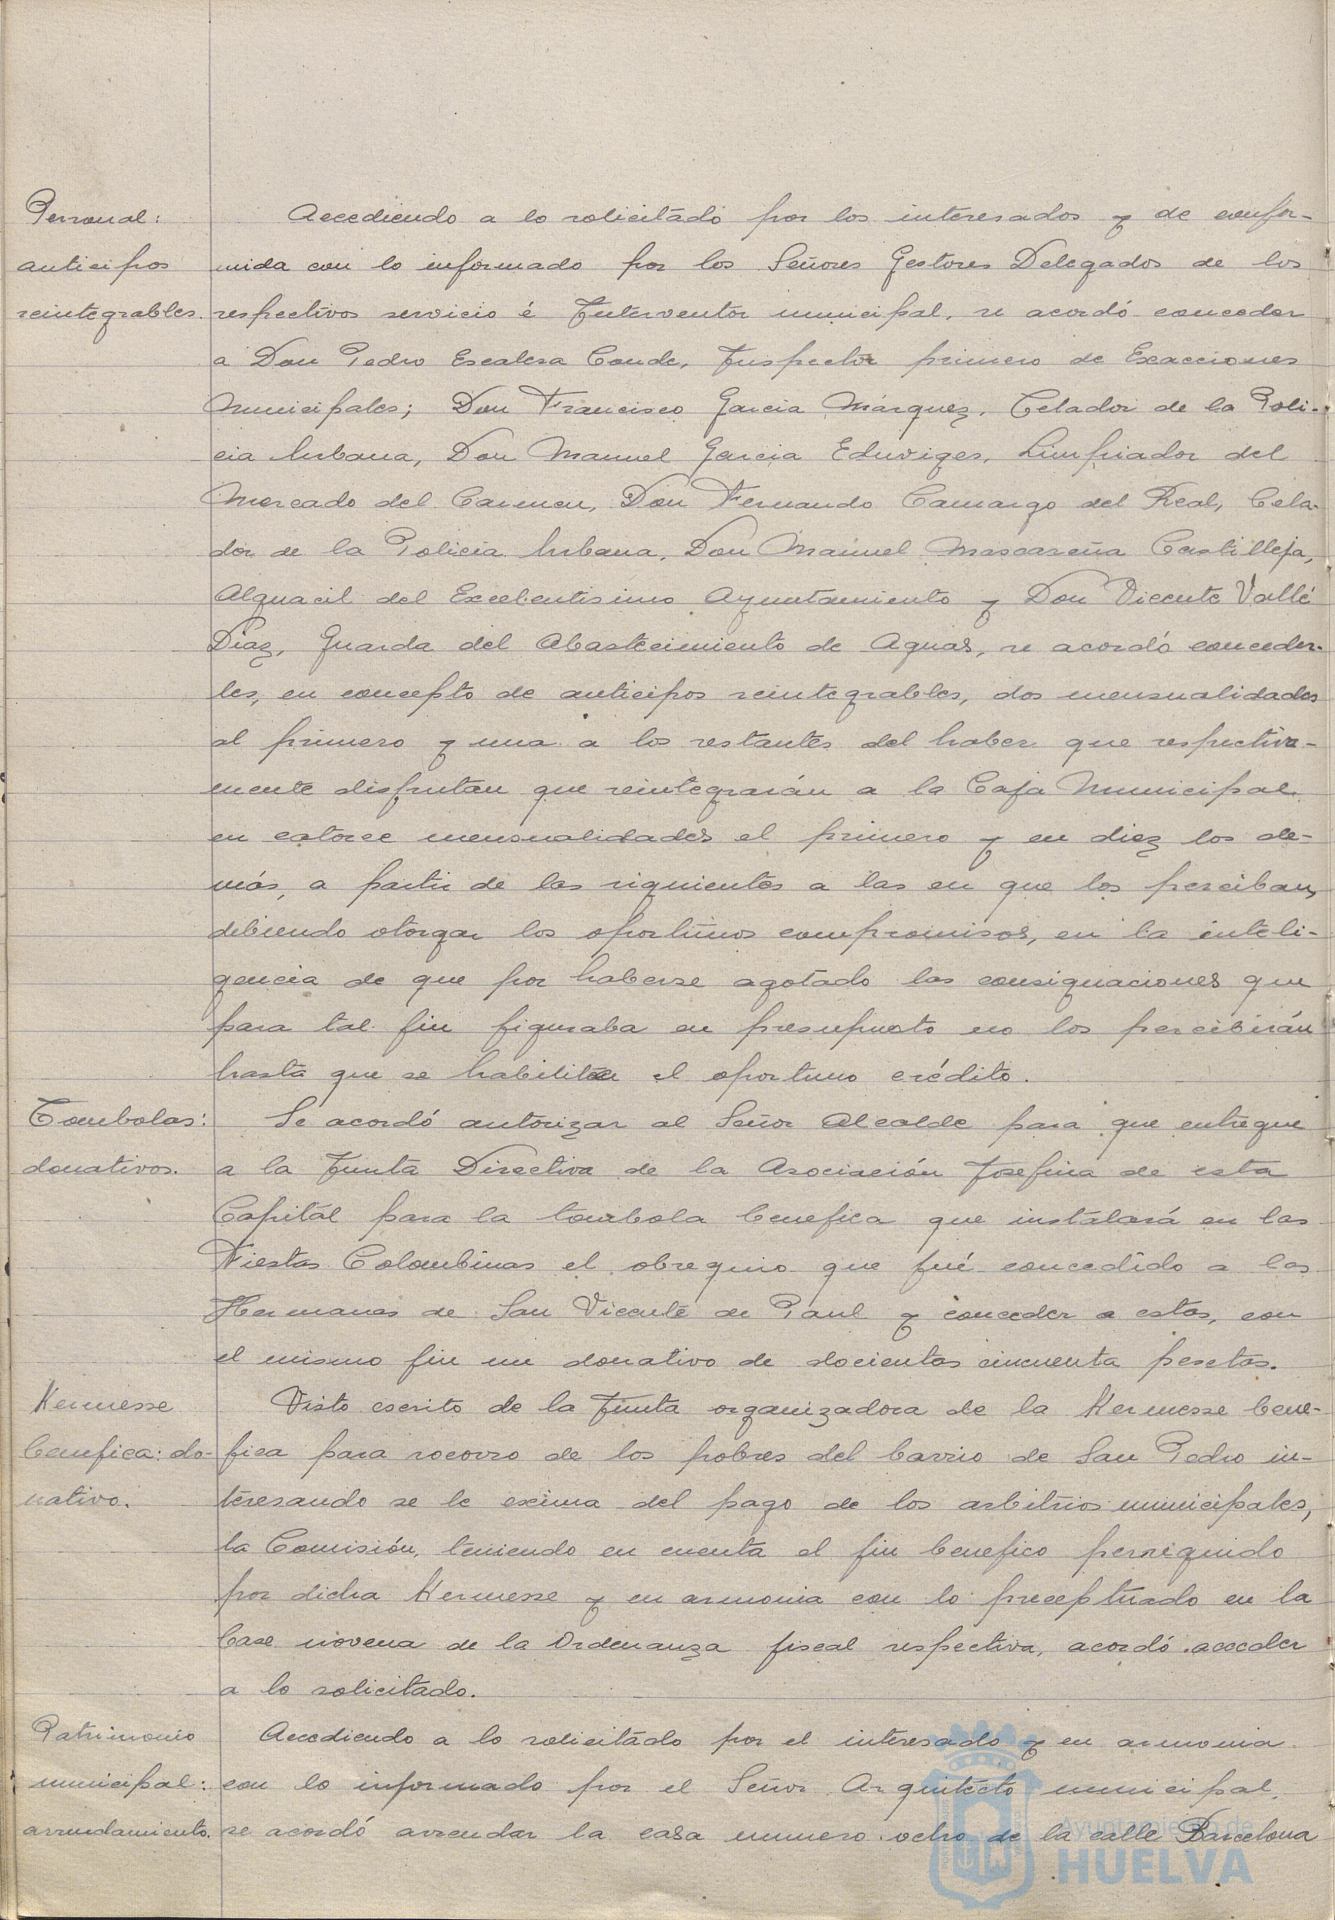 Personal:
anticipos
reintegrables.
Accediendo a lo solicitado por los interesados y de confor-
mida con lo informado por los Señores Gestores Delegados de los
respectivos servicio é Interventor municipal, se acordó conceder
a Don Pedro Escalera Conde, Inspector primero de Exacciones
Municipales; Don Francisco Garcia Márquez, Celador de la Poli-
cia Urbana, Don Manuel Garcia Eduviges, Limpiador del
Mercado del Carmen, Don Fernando Camargo del Real, Cela-
dor de la Policia Urbana, Don Manuel Mascareña Castilleja,
Alguacil del Excelentisimo Ayuntamiento y Don Vicente Vallé
Diaz, Guarda del Abastecimiento de Aguas, se acordó conceder-
les, en concepto de anticipos reintegrables, dos mensualidades
al primero y una a los restantes del haber que respectiva-
mente disfrutan que reintegrarán a la Caja Municipal
en catorce mensualidades el primero y en diez los de-
más, a partir de las siguientes a las en que los perciban,
debiendo otorgar los oportunos compromisos, en la inteli-
gencia de que por haberse agotado las consignaciones que
para tal fin figuraba en presupuesto no los percibirán
hasta que se habilite el oportuno crédito.
Tombolas:
donativos.
Se acordó autorizar al Señor Alcalde para que entregue
a la Junta Directiva de la Asociación Josefina de esta
Capital para la tombola benefica que instalará en las
Fiestas Colombinas el obsequio que fué concedido a las
Hermanas de San Vicente de Paul y conceder a estas, con
el mismo fin un donativo de docientas cincuenta pesetas.
Kermesse
benefica: do-
nativo.
Visto escrito de la Junta organizadora de la Kermesse bene-
fica para socorro de los pobres del barrio de San Pedro in-
teresando se le exima del pago de los arbitrios municipales,
la Comisión, teniendo en cuenta el fin benefico perseguido
por dicha Kermesse y en armonia con lo preceptuado en la
base novena de la Ordenanza fiscal respectiva, acordó acceder
a lo solicitado.
Patrimonio
municipal:
arrendamiento.
Accediendo a lo solicitado por el interesado y en armonia
con lo informado por el Señor Arquitecto municipal,
se acordó arrendar la casa numero ocho de la calle Barcelona
Ayuntamiento de
HUELVA